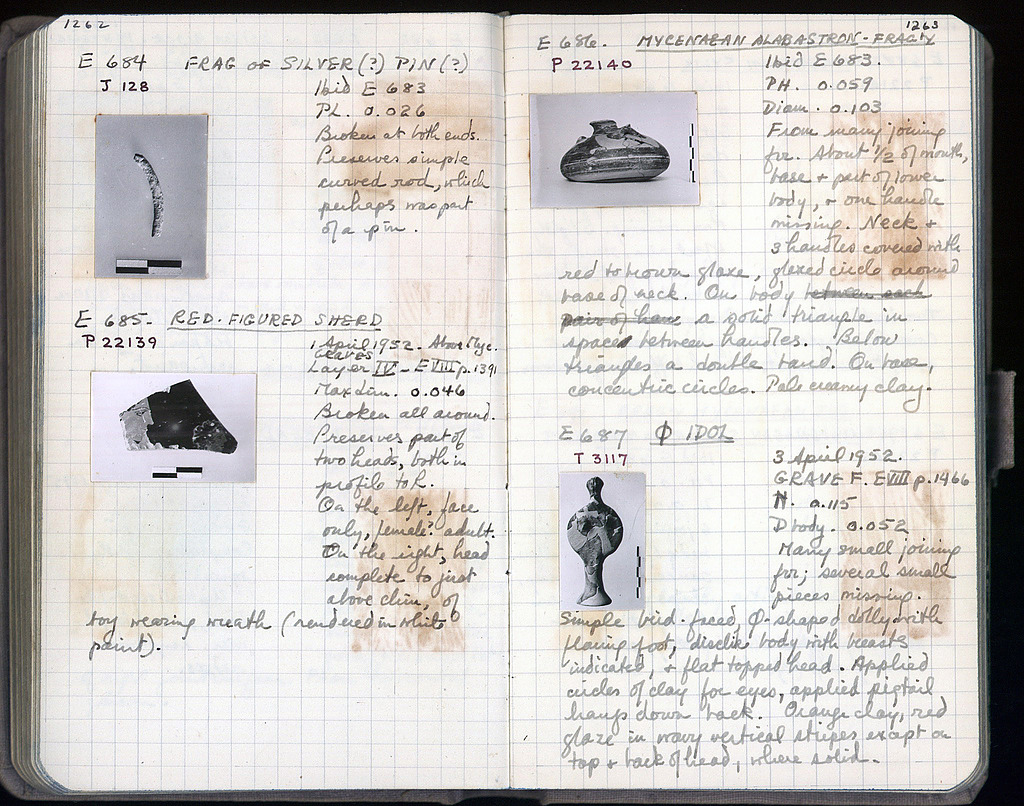 1262
E 684 FRAG OF SILVER (?) PIN (?)
J 128
Ibid E 683
PL. 0.026
Broken at both ends.
Preserves simple
curved rod, which
perhaps was part
of a pin.
E 685- RED-FIGURED SHERD
P 22139
1 April 1952. Above Myc.
GRAVES
Layer IV - E VIII p. 1391
Max dim. 0.046
Broken all around.
Preserves part of
two heads, both in
profile to R.
On the left, face
only, female? adult.
On the right, head
complete to just
above chin, of
boy wearing wreath (rendered in white
paint).
1263
E 686. MYCENAEAN ALABASTRON - FRAG'Y
P 22140
Ibid E 683.
PH. 0.059
Diam. 0.103
From many joining
frr. About 1/2 of mouth,
base + part of lower
body, + one handle
missing. Neck +
3 handles covered with
red to brown glaze, glazed circle around
base of neck. On body between each
pair of hans a solid triangle in
spaces between handles. Below
triangles a double band. On base,
concentric circles. Pale creamy clay.
E 687 Φ IDOL
T 3117
3 April 1952.
GRAVE F. E VIII p. 1466
H. 0.115
D body. 0.052
Many small joining
frr; several small
pieces missing.
Simple bird-faced, Φ-shaped dolly with
flaring foot, disclike body with breasts
indicated, + flat topped head. Applied
circles of clay for eyes, applied pigtail
hangs down back. Orange clay, red
glaze in wavy vertical stripes except on
top + back of head, where solid.